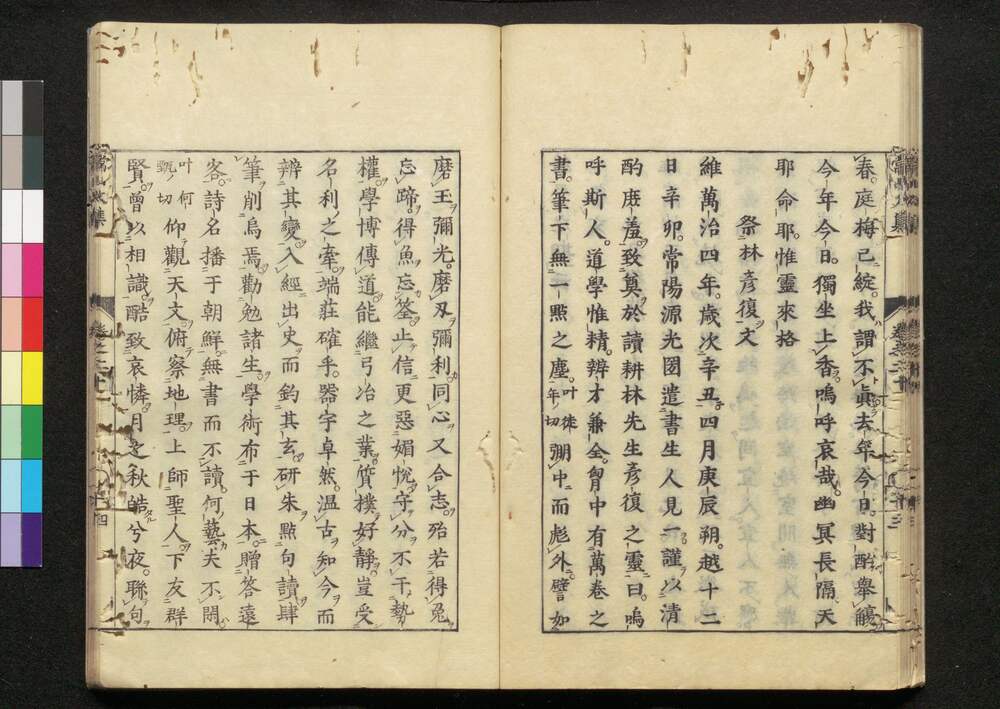 春庭梅已綻。我謂不眞去年今日。對酌擧觴
今年今日。獨坐上香。嗚呼哀哉。幽冥長隔。天
耶命耶。惟靈來格
祭林彥復文
維萬治四年。歲次辛丑。四月庚辰朔。越十二
日辛卯。常陽源光圀遣書生人見一謹以清
酌庶羞。致奠於讀耕林先生彥復之靈曰。嗚
呼斯人。道學惟精。辨才兼全。胷中有萬卷之
書。筆下無一點之塵。叶徙年切弸中而彪外。壁如
磨玉彌光。磨刃彌利。同心又合志。殆若得兔
忘蹄。得魚忘筌。止信更惡媚悅。守分不干勢
權。學博傳道。能繼弓冶之業。質撲好靜。豈受
名利之牽。端莊確乎。器宇卓然。溫古知今而
辨其變。入經出史而釣其玄。研朱點句讀。肆
筆削烏焉。勸勉諸生。學術布于日本。贈答遠
客。詩名播于朝鮮。無書而不讀。何藝夫不閑。
叶何甄切仰觀天文。俯察地理。上師聖人。下友群
賢。曾以相識。酷致哀憐。月之秋皓兮夜。聯句